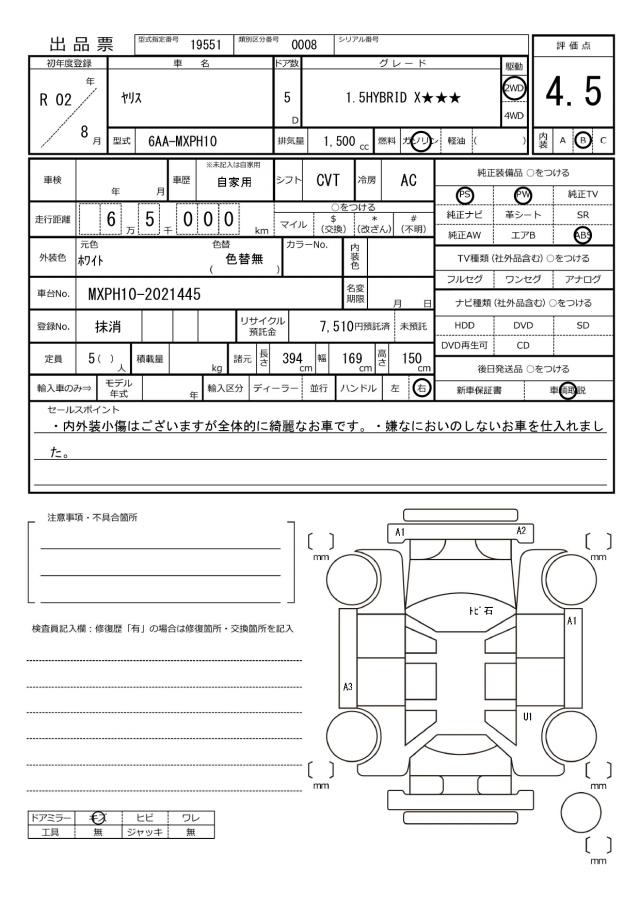 出品票
型式指定番号 19551 類別区分番号 0008 シリアル番号
評価点
4.5
内装 A B C
初年度登録 車名 ドア数 グレード 駆動
R 02 年 8 月
ヤリス 5 D 1.5HYBRID X★★★ 2WD
4WD
型式 6AA-MXPH10 排気量 1,500 cc 燃料 ガソリン 軽油 ( )
車検 年 月 車歴 ※未記入は自家用 自家用 シフト CVT 冷房 AC
走行距離 6 5 000 万 千 km
○をつける
マイル $ (交換) * (改ざん) # (不明)
外装色 元色 ホワイト 色替 ( 色替無 ) カラーNo. 内装色
車台No. MXPH10-2021445 名変期限 月 日
登録No. 抹消 リサイクル預託金 7,510円預託済 未預託
定員 5( ) 人 積載量 kg 諸元 長さ 394 cm 幅 169 cm 高さ 150 cm
輸入車のみ⇒ モデル年式 年 輸入区分 ディーラー 並行 ハンドル 左 右
純正装備品 ○をつける
PS PW 純正TV
純正ナビ 革シート SR
純正AW エアB ABS
TV種類(社外品含む)○をつける
フルセグ ワンセグ アナログ
ナビ種類(社外品含む)○をつける
HDD DVD SD
DVD再生可 CD
後日発送品 ○をつける
新車保証書 車輌取説
セールスポイント
・内外装小傷はございますが全体的に綺麗なお車です。・嫌なにおいのしないお車を仕入れまし
た。
注意事項・不具合箇所
検査員記入欄:修復歴「有」の場合は修復箇所・交換箇所を記入
A1 A2
mm mm
トビ石
A1
A3
U1
mm mm
mm
ドアミラー キズ ヒビ ワレ
工具 無 ジャッキ 無